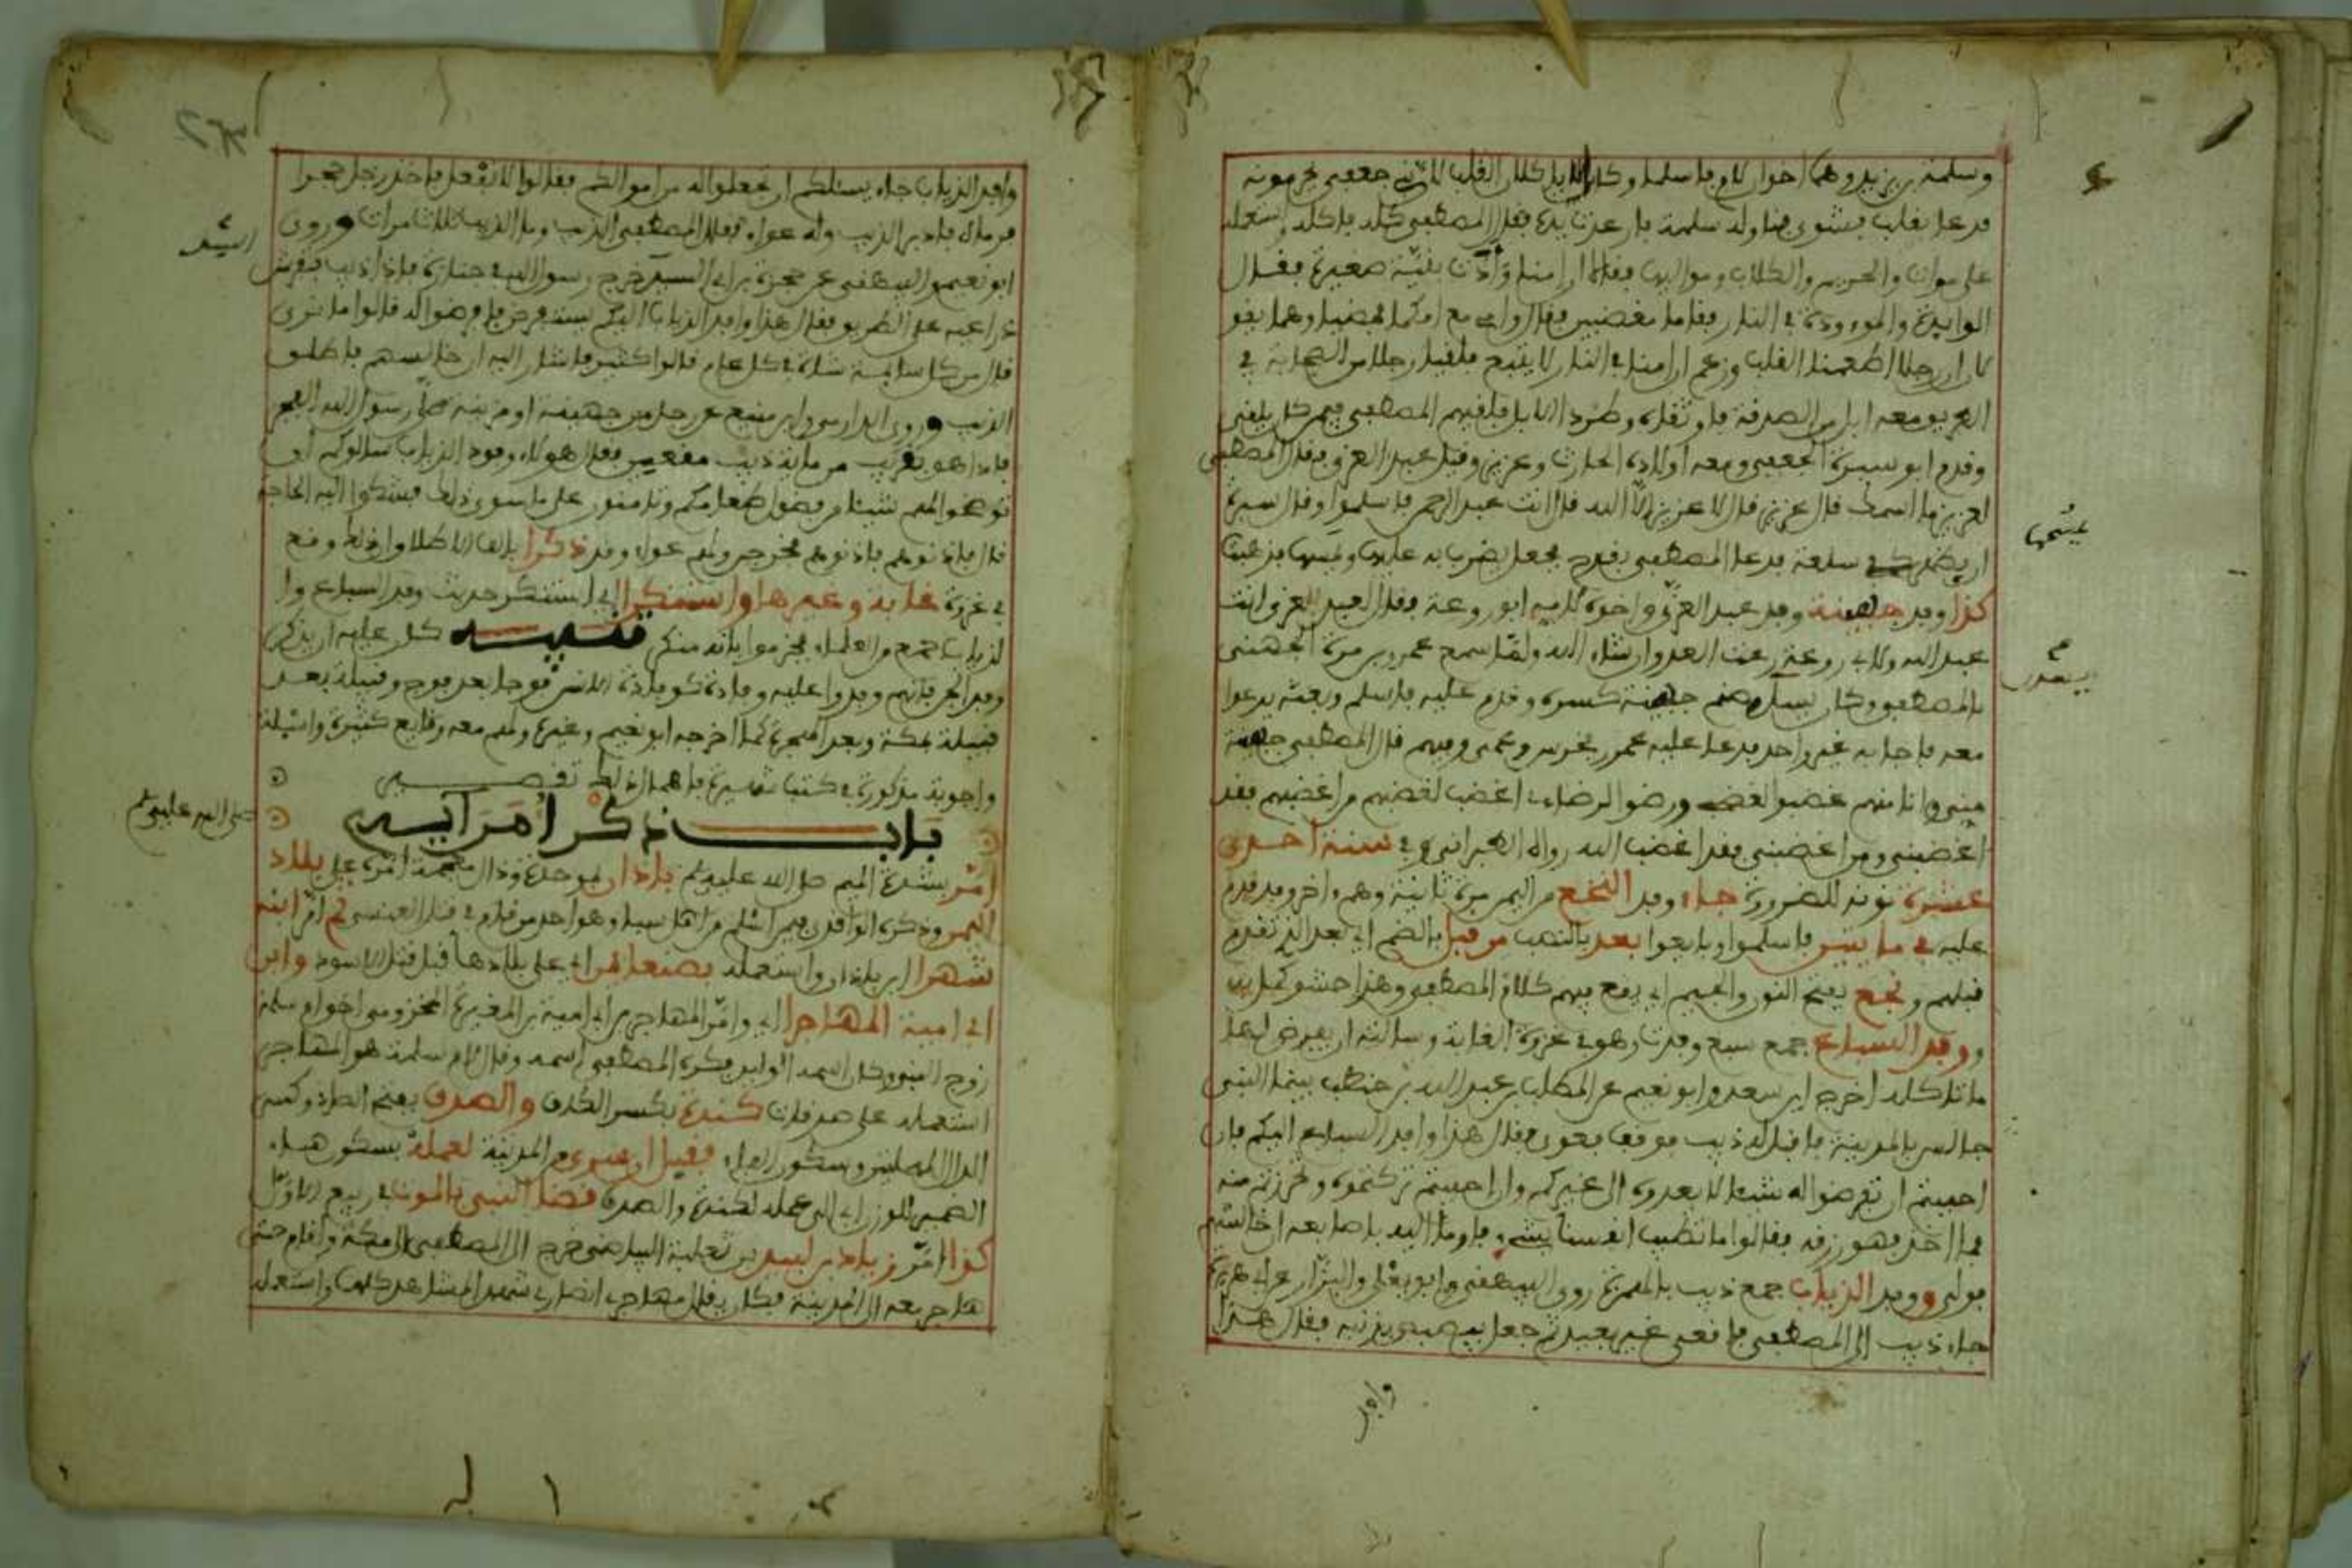 وسلمة بن يزيد وهما اخوان لام فاسلما وكان لا ياكلان القلب لان بني جعفي يحرمونه
فدعا بقلب فشوي فناوله سلمة فارعدت يده فقال المصطفى كله فاكله واستعمله
على مران والحريم والكلاب ومواليها فقالا ان امنا وأدت بنيّة صغيرة فقال
الوايدة والموءودة في النار فقاما مغضبين فقال وامي مع امكما فمضيا وهما يقو
لان ان رجلا اطعمنا القلب وزعم ان امنا في النار لا يتبع فلقيا رجلا من الصحابة في
الطريق معه ابل من الصدقة فاوثقاه وطردا الابل فلعنهم المصطفى فيمن كان يلعن
وقدم ابو سبرة الجعفي ومعه اولاده الحارث وعزيز وقيل عبد العزى فقال المصطفى
لعزيز ما اسمك قال عزيز قال لا عزيز الا الله قال انت عبد الرحمن فاسلموا وقال لسبرة
ان بظهر كفي سلعة فدعا المصطفى بقدح فجعل يضرب به عليها ويمسها فذهبت
كذا وفد جهينة وفد عبد العزى واخوه لامه ابو روعة فقال لعبد العزى انت
عبد الله ولابي روعة رعت العدو ان شاء الله ولما سمع عمرو بن مرة الجهني
بالمصطفى وكان يسدن صنم جهينة كسره وقدم عليه فاسلم وبعثه يدعوا
معه فاجابه غير واحد فدعا عليه عمرو فخرس وعمي وفيهم قال المصطفى جهينة
مني وانا منهم غضبوا لغضبي ورضوا لرضاءي اغضب لغضبهم من اغضبهم فقد
اغضبني ومن اغضبني فقد اغضب الله رواه الطبراني وفي سنة احدى
عشرة نونه للضرورة جاء وفد النخع من اليمن مرة ثانية وهم اخر وفد قدم
عليه في مايتين فاسلموا وبايعوا بعد بالنصب من قبل بالضم اي بعد الذي تقدم
قبلهم ونجع بفتح النون والجيم اي يقع فيهم كلام المصطفى وهذا حشو كمل به
ووفد السباع جمع سبع وفدت وهو في غزوة الغابة وسالته ان يفرض لها
ما تاكله اخرج ابن سعد وابو نعيم عن المطلب بن عبد الله بن حنطب بينما النبي
جالس بالمدينة فاقبل ذيب فوقف فعوى فقال هذا وافد السباع اليكم فان
احببتم ان تفرضوا له شيئا لا يعدوه الى غيركم وان احببتم تركتموه وتحرزتم منه
فما اخذ فهو رزقه فقالوا ما تطيب انفسنا بشيء فاوما اليه باصابعه اي خالسهم
فولى ووفد الذياب جمع ذيب بالهمزة روى البيهقي وابو يعلى والبزار عن ابي هريرة
جاء ذيب الى المصطفى فاقعى غير بعيد ثم جعل يبصبص بذنبه فقال هذا
وافد
وافد الذياب جاء يسئلكم ان تجعلوا له من اموالكم فقالوا لا نفعل فاخذ رجل حجرا
فرماه فادبر الذيب وله عواء فقال المصطفى الذيب وما الذيب ثلاث مرات وروى
ابو نعيم والبيهقي عن حمزة بن ابي السيد خرج رسول الله في جنازة فاذا ذيب مفترش
ذراعيه على الطريق فقال هذا وافد الذياب اليكم يستفرض فافرضوا له قالوا ما ترى
قال من كل سايمة شاة في كل عام قالوا كثير فاشار اليه ان خالسهم فانطلق
الذيب وروى الدارمي وابن منيع عن رجل من جهينة او مزينة صلى رسول الله الفجر
فاذا هو بقريب من ماية ذيب مقعين فقال هؤلاء وفود الذياب سالوكم ان
تفرضوا لهم شيئا من فضول طعامكم وتامنون على ما سوى ذلك فشكوا اليه الحاجة
قال فاذنوهم فاذنوهم فخرجن ولهن عواء وقد ذكرا بالف الاطلاق اي ذلك وقع
في غزوة غابة وغيرها واستنكرا اي استنكر حديث وفد السباع وا
لذياب جمع من العلماء فجزموا بانه منكر تنبيه كان عليه ان يذكر
وفد الجن فانهم وفدوا عليه وفادة كوفادة الانس فوجا بعد فوج وقبيلة بعد
قبيلة بمكة وبعد الهجرة كما اخرجه ابو نعيم وغيره ولهم معه وقايع كثيرة واسئلة
واجوبة مذكورة في كتب شهيرة فاهمال ذلك تقصير
باب ذكر أمرآيه
صلى الله عليه وسلم
أمّر بشدة الميم صلى الله عليه وسلم باذان بموحدة وذال معجمة امّره على بلاد
اليمن وذكره الواقدي فيمن اسلم من اهل سبا وهو احد من قام في قتل العنسي ثم امّر ابنه
شهرا ابن باذان واستعمله بصنعا امرا اي على بلادها قبل قتل الاسود وابن
ابي امية المهاجرا اي وامّر المهاجر بن ابي امية بن المغيرة المخزومي اخو ام سلمة
زوج النبي وكان اسمه الوليد فكره المصطفى اسمه وقال لام سلمة هو المهاجر
استعمله على صدقات كندة بكسر الكاف والصدف بفتح الصاد وكسر
الدال المهملتين وسكون الفاء فقبل ان يسري من المدينة لعمله بسكون هاء
الضمير للوزن اي الى عمله لكندة والصدف قضا النبي بالموت في ربيع الاول
كذا امّر زياد بن لبيد بن ثعلبة البياضي خرج الى المصطفى الى مكة واقام حتى
هاجر معه الى المدينة فكان يقال مهاجري انصاري شهد المشاهد كلها واستعمله